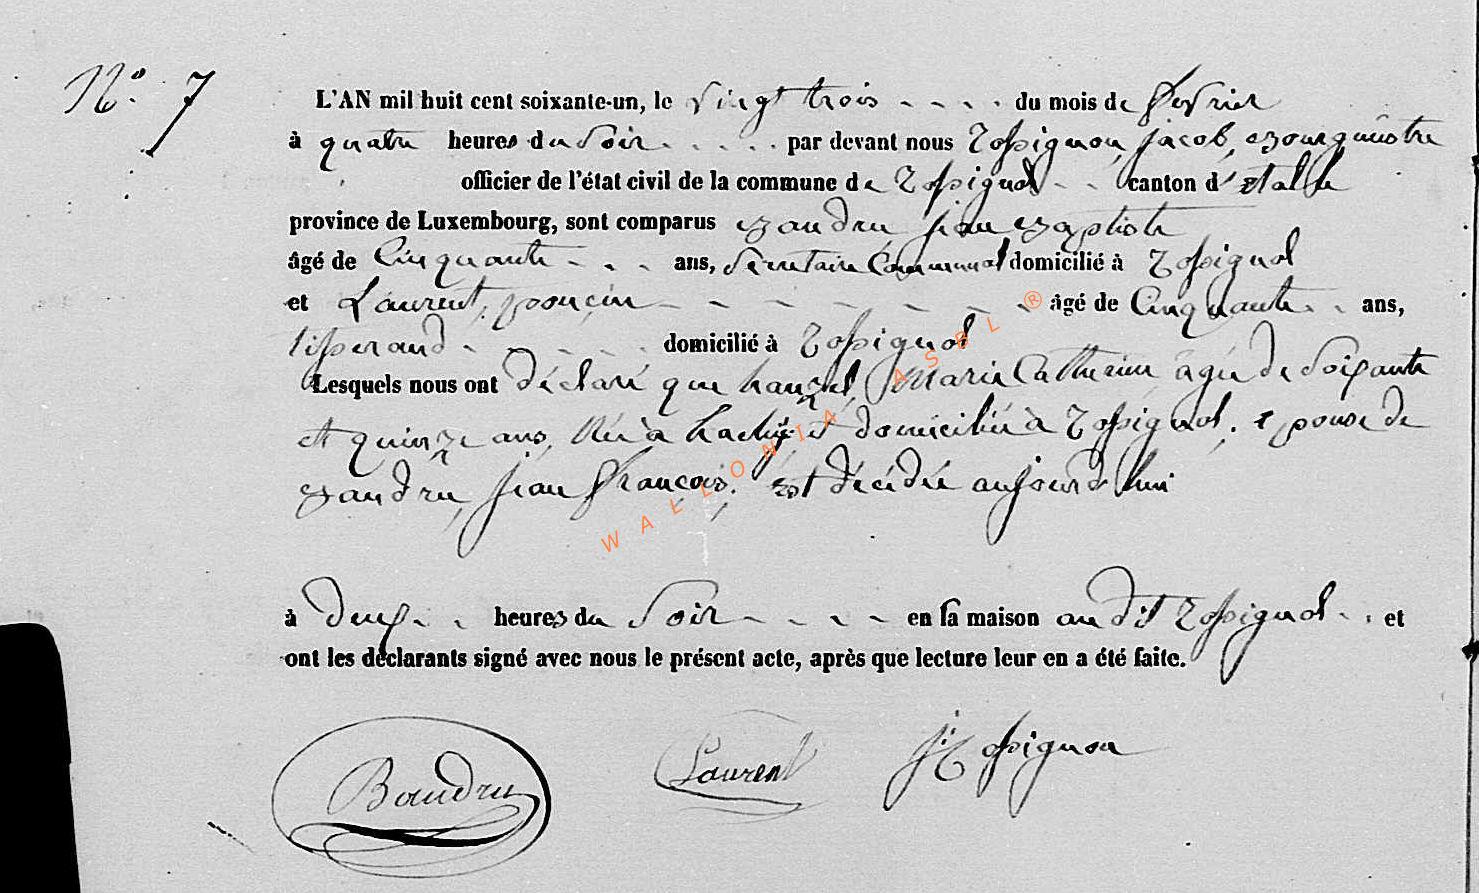 N° 7
L'AN mil huit cent soixante-un, le vingt trois du mois de fevrier
à quatre heures du soir par devant nous Rossignon, jacob, Bourgmestre
officier de l'état civil de la commune de Rossignol canton d'etalle
province de Luxembourg, sont comparus Baudru jean Baptiste
âgé de Cinquante ans, Secretaire Communal domicilié à Rossignol
et Laurent, poncin âgé de Cinquante ans,
tisserand domicilié à Rossignol
Lesquels nous ont déclaré que hanzel, Marie Catherine âgée de Soixante
et quinze ans, Née à hachy et domiciliée à Rossignol, epouse de
Baudru, jean françois, est décédée aujourd'hui
à deux heures du Soir en sa maison au dit Rossignol et
ont les déclarants signé avec nous le présent acte, après que lecture leur en a été faite.
Baudru Laurent J Rossignon
WALLONIA ASBL ®